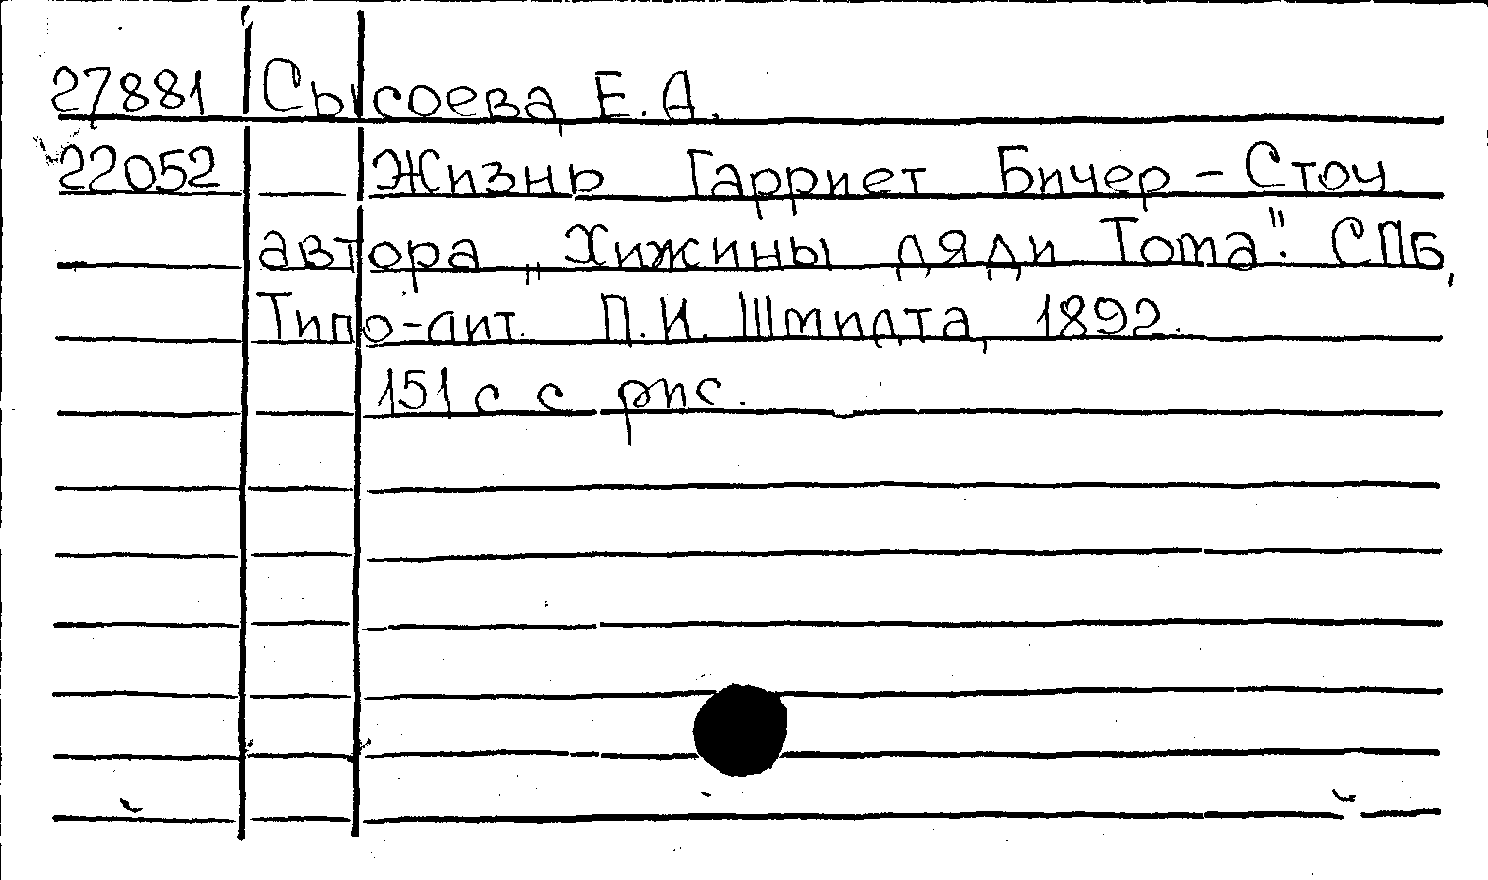 27881 Сысоева Е.А.
22052 Жизнь Гарриет Бичер-Стоу
автора „Хижины дяди Тома". СПб,
Типо-лит. П.И. Шмидта, 1892.
151 с с рис.